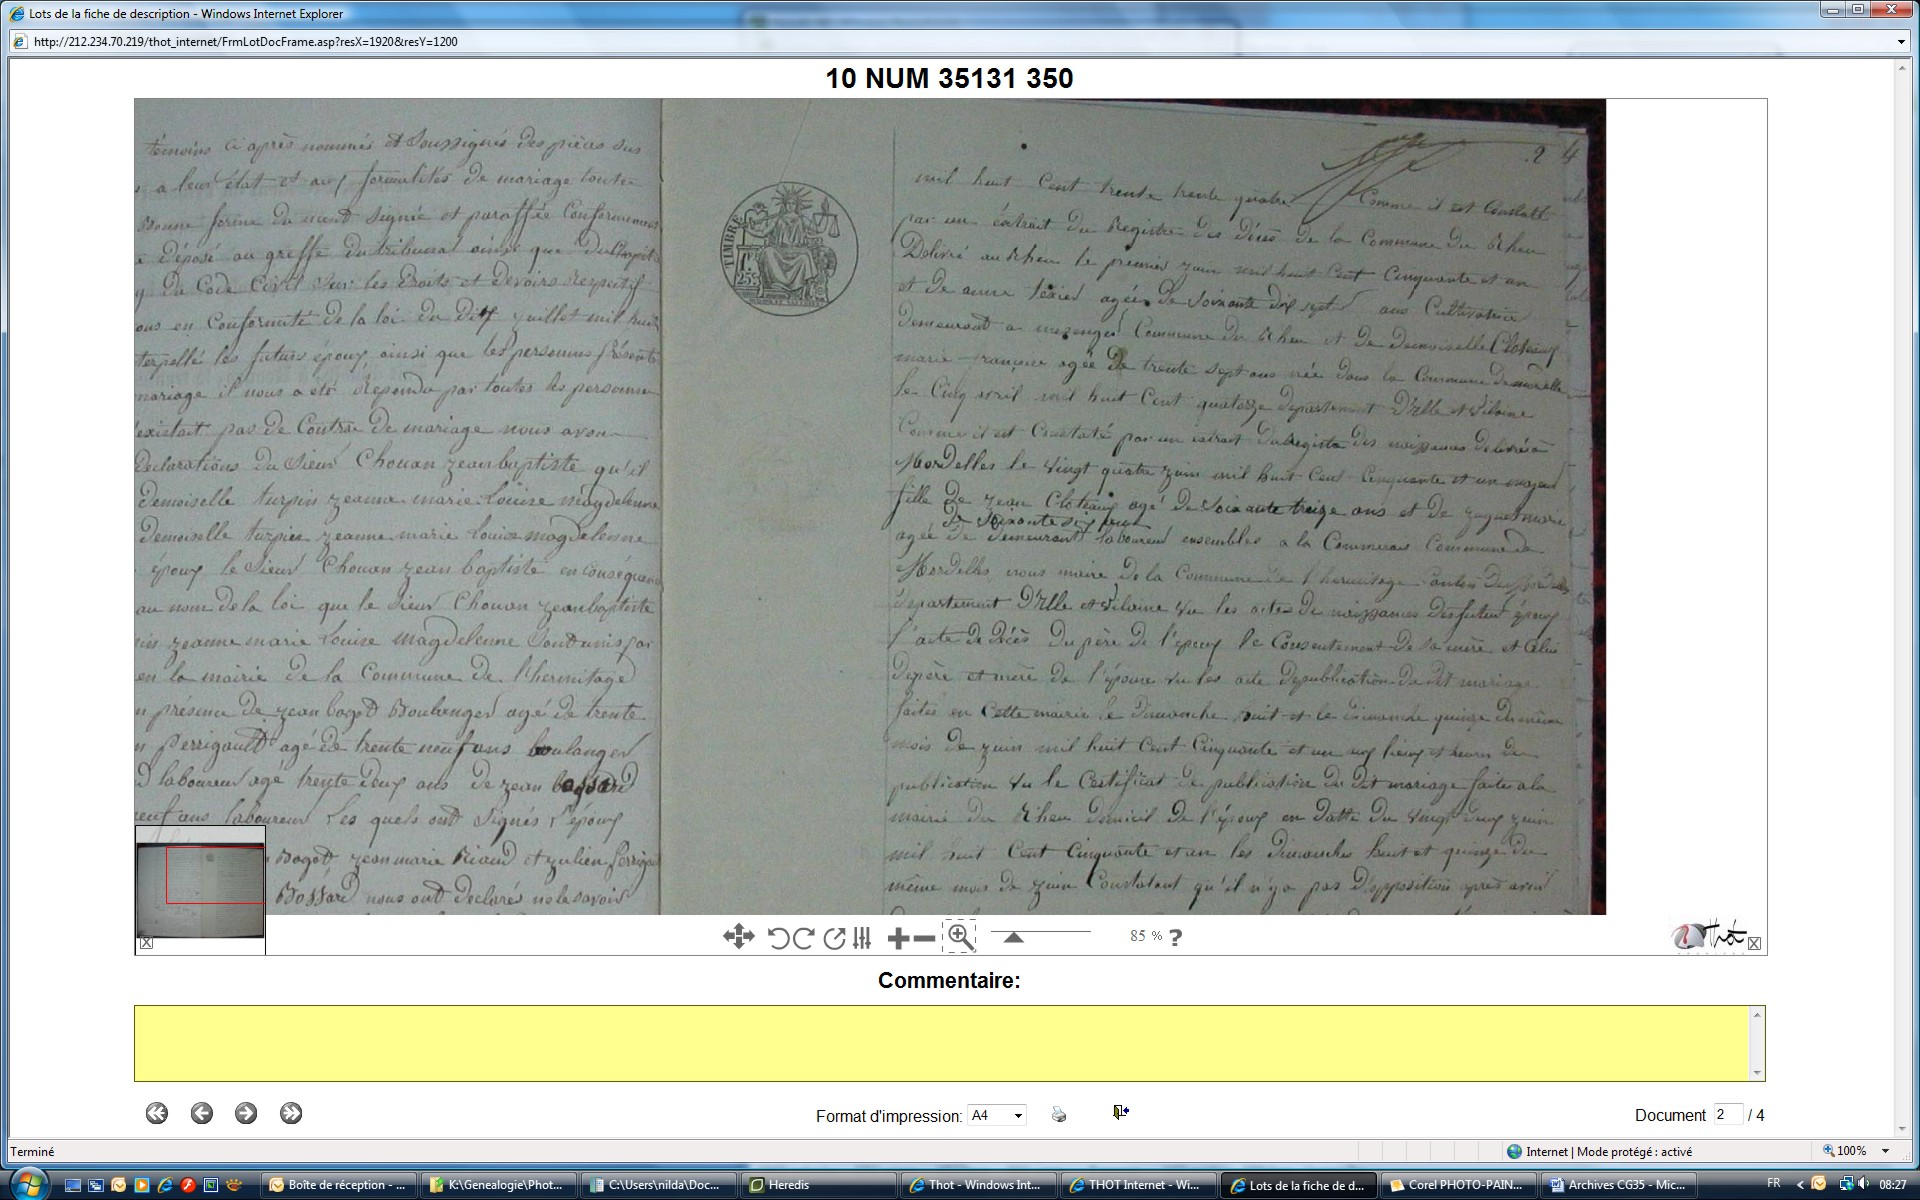 Lots de la fiche de description - Windows Internet Explorer
http://212.234.70.219/thot_internet/FrmLotDocFrame.asp?resX=1920&resY=1200
10 NUM 35131 350
témoins ci après nommés et Soussignés des pièces
a leur état et aux formalités de mariage toute
Bonne forme du signé et paraffée Conformement
déposé au greffe du tribunal ainsi que
du Code Civil Sur les Droits et Devoirs Respectif
ous en Conformité de la loi du Dix juillet mil huit
terpellé les futurs époux ainsi que les personnes présente
mariage il nous a été Répondu par toutes les personnes
existait pas de Contrat de mariage nous avon
declarations du Sieur Chouan jean baptiste qu'il
demoiselle turpin jeanne marie Louise magdelenne
demoiselle turpin jeanne marie Louise magdelenne
époux le Sieur Chouan jean baptiste en conséquence
au nom de la loi que le Sieur Chouan jean baptiste
jeanne marie Louise magdelenne Sont unis par
en la mairie de la Commune de l'hermitage
n présence de jean bagot Boulanger agé de trente
n Perrigault agé de trente neuf ans boulanger
D laboureur agé trente deux ans de jean bossard
neuf ans laboureur Les quels ont Signés L'époux
Bagot jean marie Riaud et julien Perrigau
Bossard nous ont declarés ne le savoir
TIMBRE
1 fr
25 c
.2 4
mil huit Cent trente trente quatre Comme il est Constaté
par un extrait du Registre des décès de la Commune du Rheu
Délivré au Rheu le premier juin mil huit Cent Cinquante et un
et de anne agée de Soixante dix sept ans Cultivatrice
demeurant a mezenger Commune du Rheu et de demoiselle Cloteaux
marie françoise agée De trente sept ans née dans la Commune de mordelle
le Cinq avril mil huit Cent quatorze departement D'Ille et Vilaine
Comme il est Constaté par un extrait du Registre des naissances delivré a
Mordelles le vingt quatre juin mil huit Cent Cinquante et un
fille de jean Cloteaux agé de Soixante treize ans et de
de Soixante six ans
agée de demeurant laboureur ensembles a la Commune de
Mordelles, nous maire de la Commune de l'hermitage Canton de Mordelles
departement D'Ille et Vilaine Vu les actes de naissances des futurs époux
l'acte de décès du père de l'époux le Consentement de sa mère et Celui
du père et mère de l'épouse vu les acte de publication du dit mariage
faites en Cette mairie le Dimanche huit et le Dimanche quinze du même
mois de juin mil huit Cent Cinquante et un aux lieux et heures de
publication Vu le Certificat de publication du Dit mariage faites a la
mairie du Rheu domicil de l'époux en datte du vingt deux juin
mil huit Cent Cinquante et un les Dimanches huit et quinze du
même mois de juin Constatant qu'il n'y a pas D'opposition après avoir
85 % ?
Thot
Commentaire:
Format d'impression: A4
Document 2 / 4
Terminé
Internet | Mode protégé : activé
100%
Boîte de réception - ...
K:\Genealogie\Phot...
C:\Users\nilda\Doc...
Heredis
Thot - Windows Int...
THOT Internet - Wi...
Lots de la fiche de d...
Corel PHOTO-PAIN...
Archives CG35 - Mic...
FR
08:27